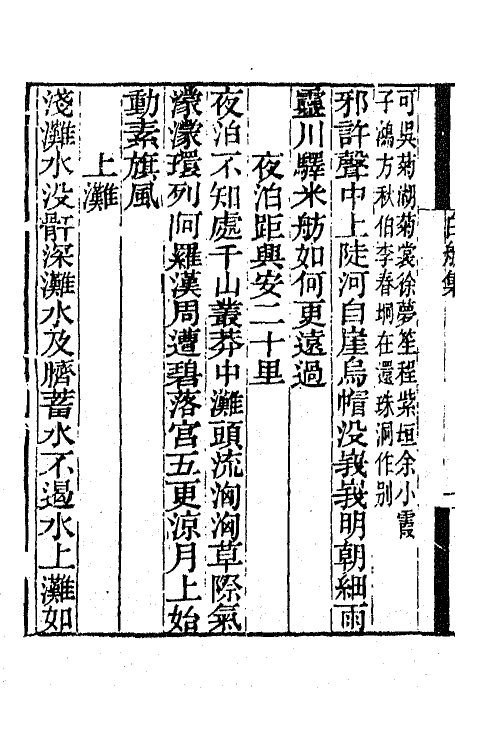 可吳菊湖菊裳徐夢笙程紫垣余小霞
子鴻方秋伯李春坰在還珠洞作别
邪許聲中上陡河白崖烏帽没峩峩明朝細雨
靈川驛米舫如何更遠過
夜泊距興安二十里
夜泊不知處千山叢莽中灘頭流洶洶草際氣
濛濛環列阿羅漢周遭碧落宫五更涼月上始
動素旗風
上灘
淺灘水没骭深灘水及臍蓄水不遏水上灘如